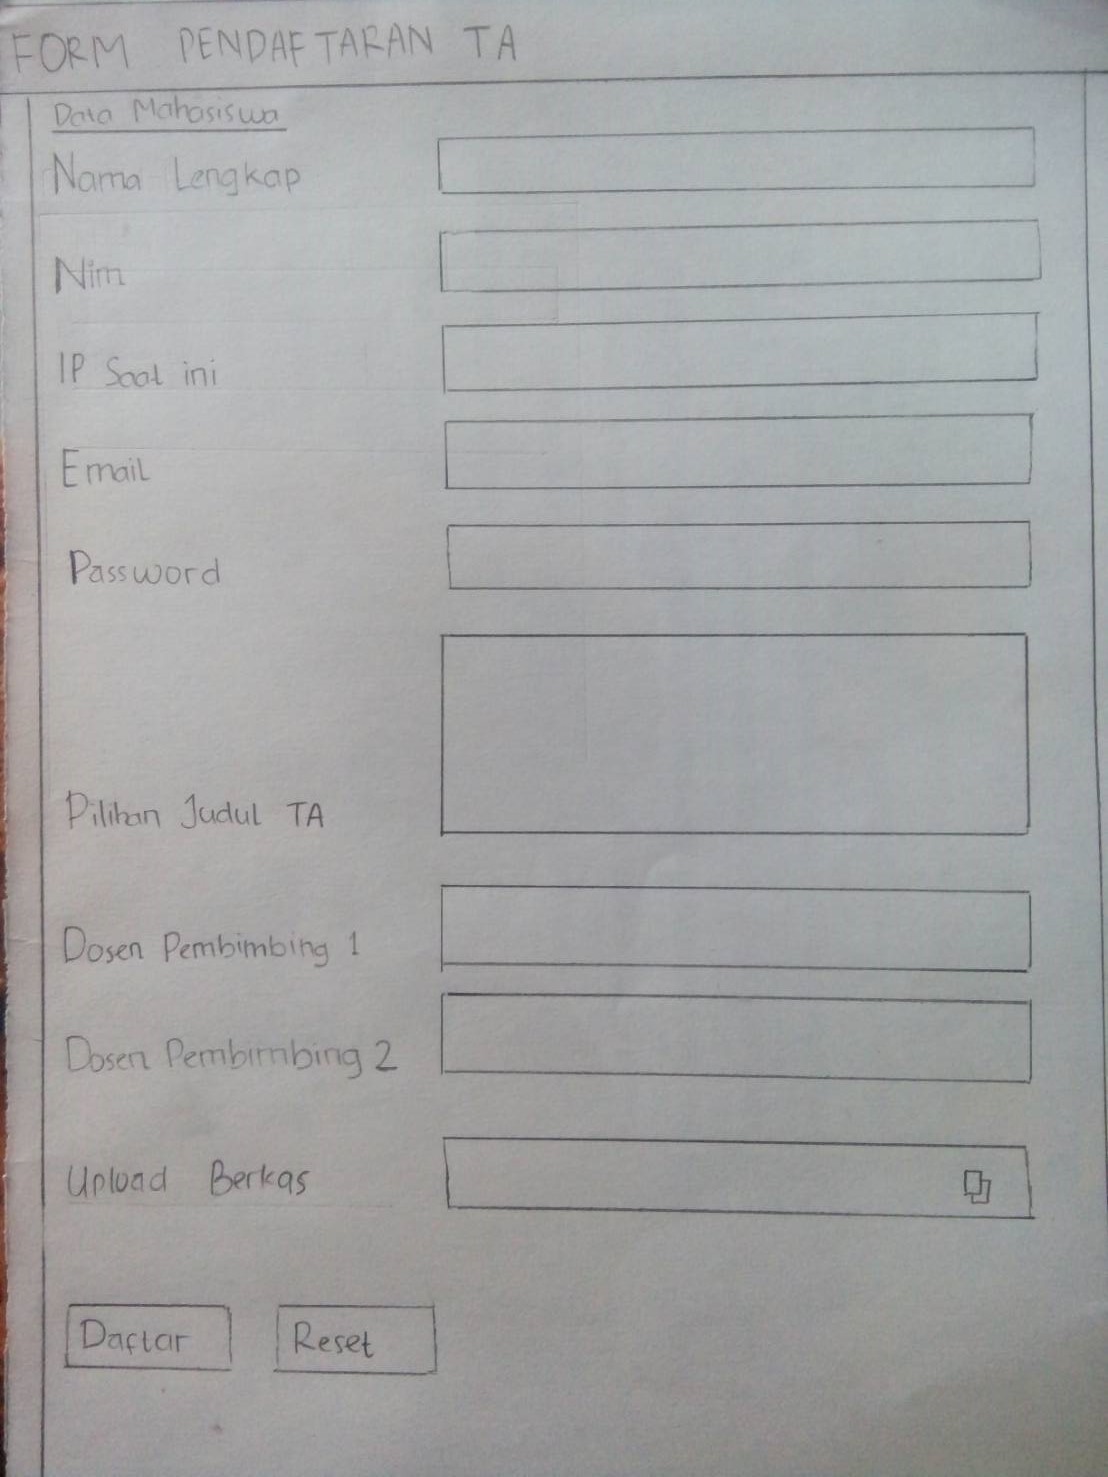 FORM PENDAFTARAN TA
Data Mahasiswa
Nama Lengkap
Nim
IP Saat ini
Email
Password
Pilihan Judul TA
Dosen Pembimbing 1
Dosen Pembimbing 2
Upload Berkas
Daftar Reset